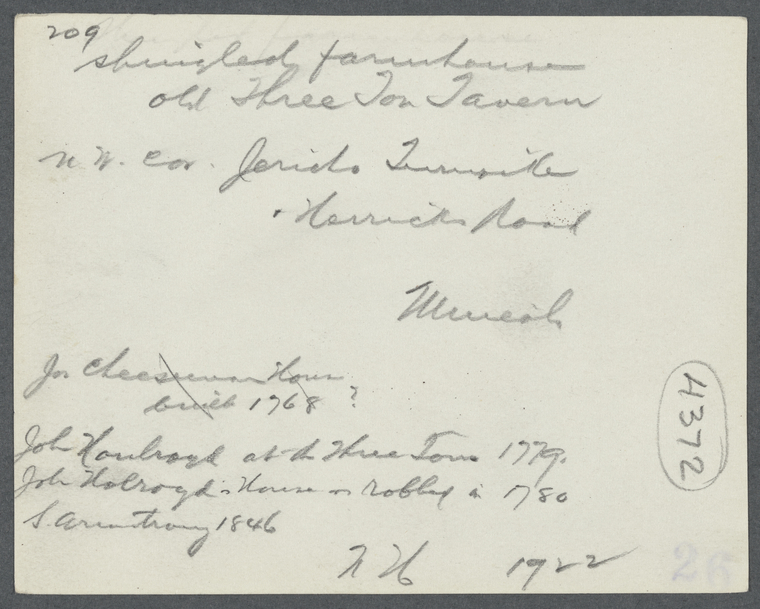 209
shingled farmhouse
old Three Ton Tavern
N.W. cor. Jericho Turnpike
Herricks Road
Mineola
Jos Cheeseman House
built 1768 ?
John Houlroyd at the Three Tons 1779.
John Holroyd's House is robbed in 1780
S. Armstrong 1846
N H 1922
4372
26